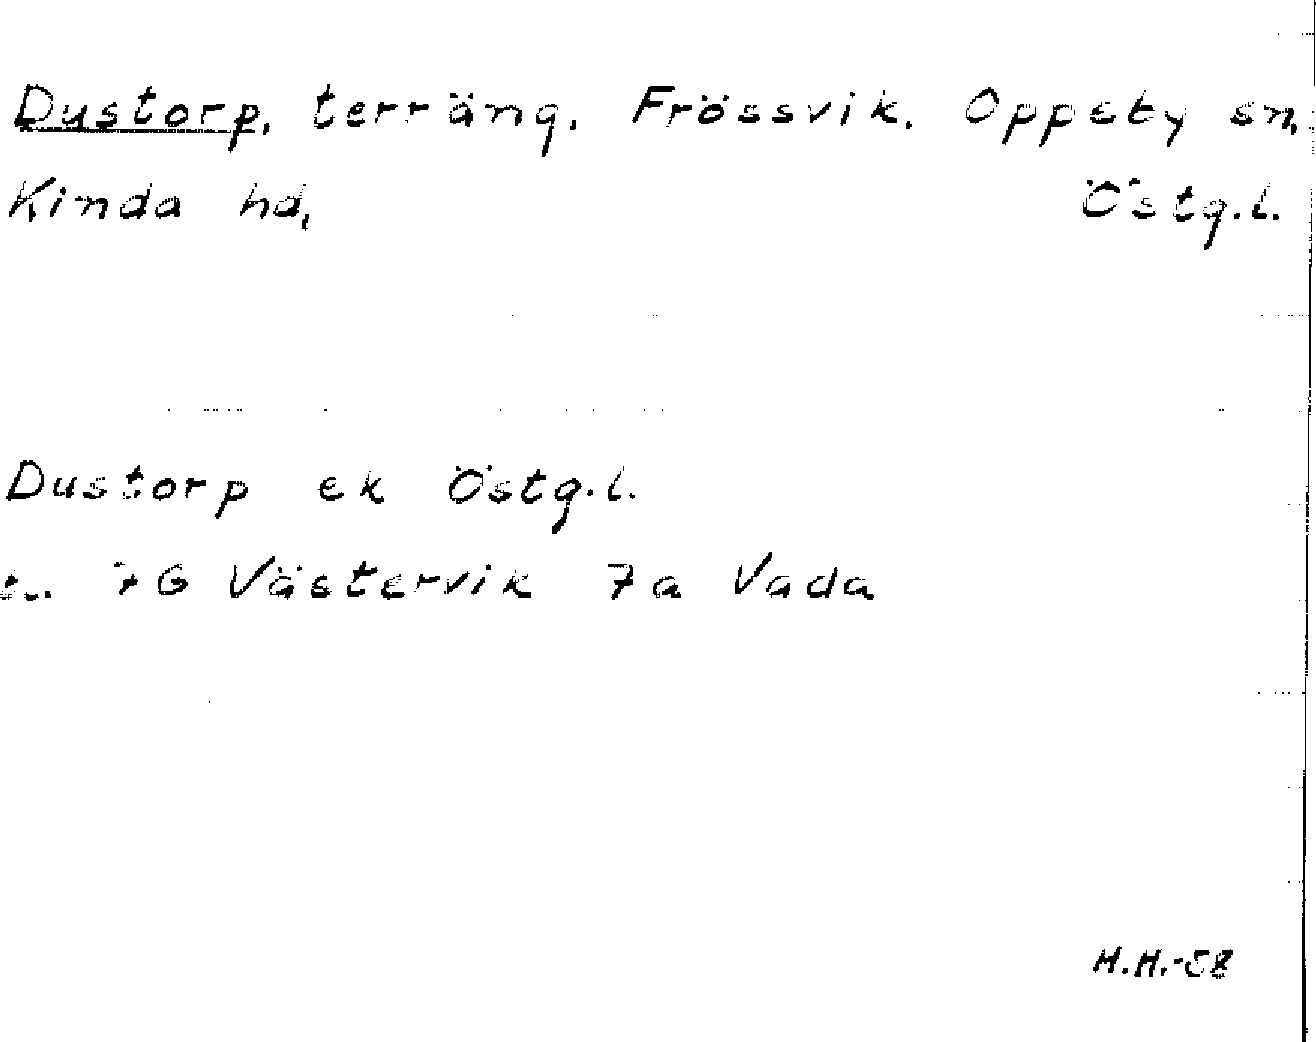 Dustorp, terräng, Frössvik, Oppeby sn,
Kinda hd, Östg.l.
Dustorp ek Östg.l.
7G Västervik 7a Vada
H.H.-58